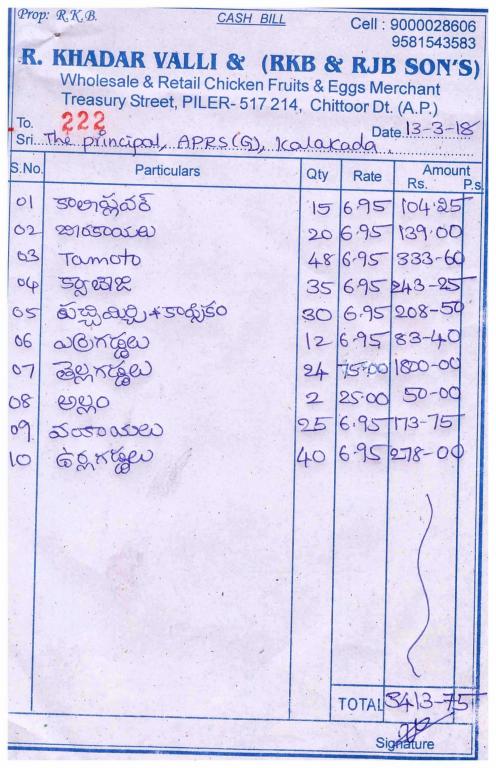 Prop: R.K.B. CASH BILL Cell : 9000028606
9581543583
R. KHADAR VALLI & (RKB & RJB SON'S)
Wholesale & Retail Chicken Fruits & Eggs Merchant
Treasury Street, PILER- 517 214, Chittoor Dt. (A.P.)
To. 222 Date 13-3-18
Sri The principal, APRS(G), Kalakada
S.No. Particulars Qty Rate Amount
Rs. P.s.
01 కాలీఫ్లవర్ 15 6.95 104.25
02 బీరకాయలు 20 6.95 139.00
03 Tamoto 48 6.95 333-60
04 క్యాబేజి 35 6.95 243-25
05 పచ్చిమిర్చి + 30 6.95 208-50
06 ఎర్రగడ్డలు 12 6.95 83-40
07 తెల్లగడ్డలు 24 75.00 1800-00
08 అల్లం 2 25.00 50-00
09 వంకాయలు 25 6.95 173-75
10 ఉర్లగడ్డలు 40 6.95 278-00
TOTAL 3413-75
Signature